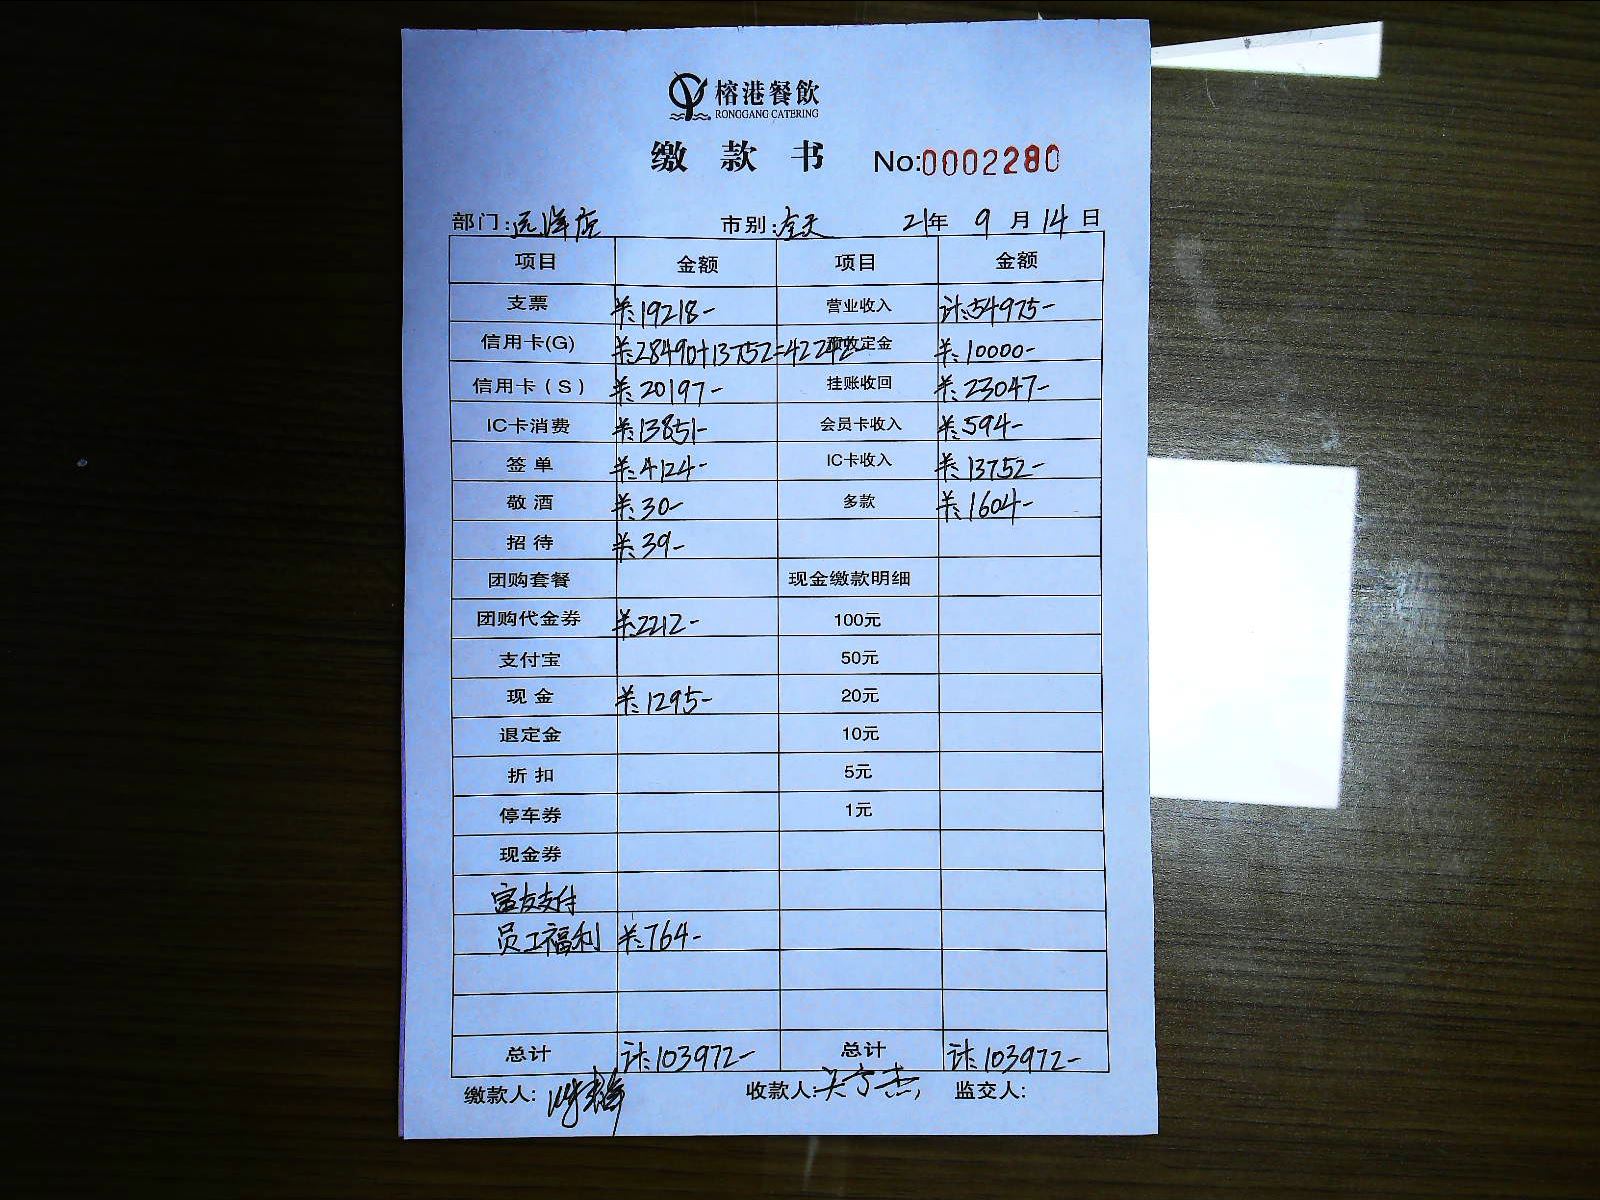 榕港餐飲
RONGGANG CATERING
缴 款 书 No:0002280
部门:远洋店 市别:全天 21年 9 月 14 日
项目 金额 项目 金额
支票 ¥:19218- 营业收入 计:54975-
信用卡(G) ¥:28490+13752=42242- 预收定金 ¥:10000-
信用卡(S) ¥:20197- 挂账收回 ¥:23047-
IC卡消费 ¥:13851- 会员卡收入 ¥:594-
签单 ¥:4124- IC卡收入 ¥:13752-
敬酒 ¥:30- 多款 ¥:1604-
招待 ¥:39-
团购套餐 现金缴款明细
团购代金券 ¥:2212- 100元
支付宝 50元
现金 ¥:1295- 20元
退定金 10元
折扣 5元
停车券 1元
现金券
富友支付
员工福利 ¥:764-
总计 计:103972- 总计 计:103972-
缴款人: 收款人: 监交人: